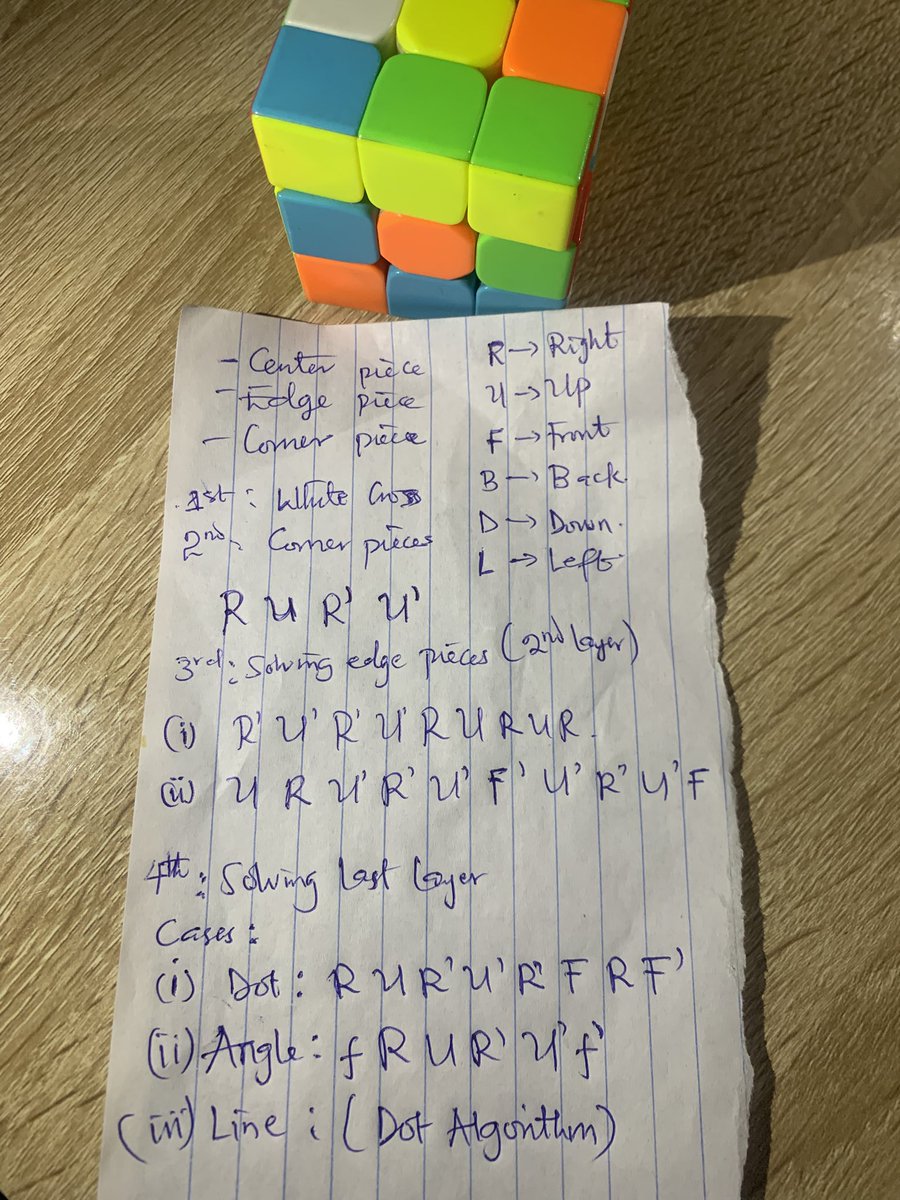 - Center piece
- Edge piece
- Corner piece
R → Right
U → Up
F → Front
B → Back.
D → Down.
L → Left
1st : White Cross
2nd : Corner pieces
R U R' U'
3rd : Solving edge pieces (2nd layer)
(i) R' U' R' U' R U R U R.
(ii) U R U' R' U' F' U' R' U' F
4th : Solving last layer
Cases :
(i) Dot : R U R' U' R' F R F'
(ii) Angle : f R U R' U' f'
(iii) Line : (Dot Algorithm)